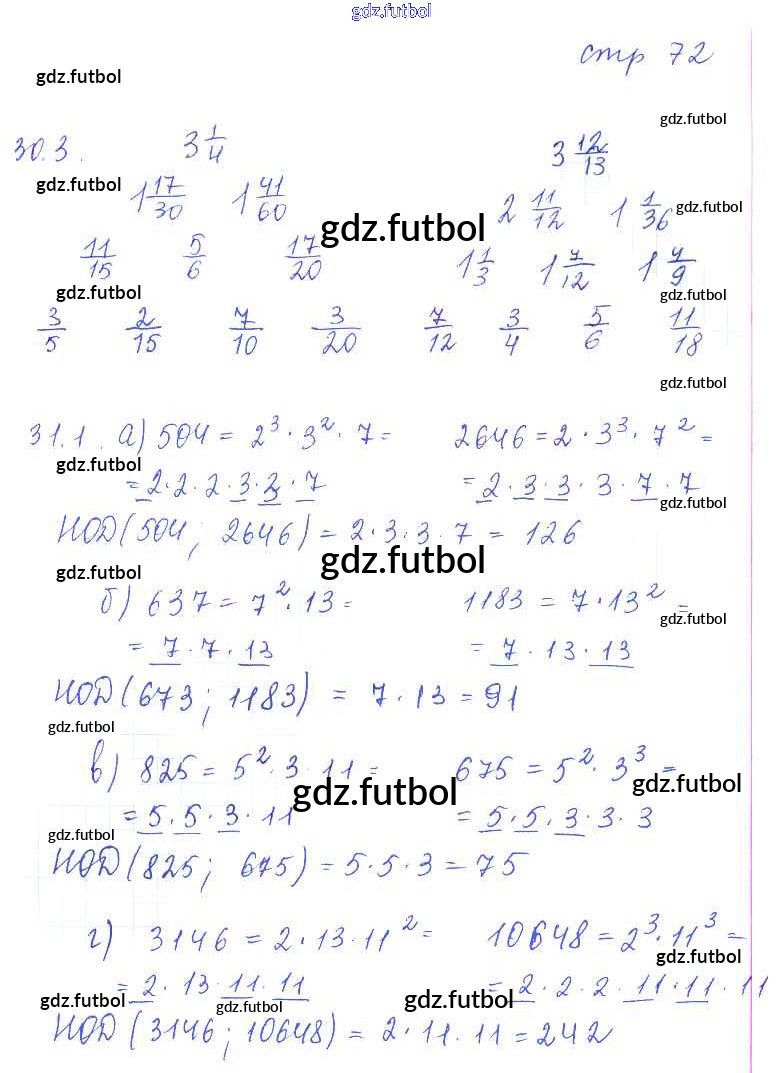 gdz.futbol
стр 72
gdz.futbol
gdz.futbol
30.3. 3 1/4 3 12/13
gdz.futbol
1 17/30 1 41/60 2 11/12 1 1/36
gdz.futbol
gdz.futbol
11/15 5/6 17/20 1 1/3 1 7/12 1 4/9
gdz.futbol gdz.futbol
3/5 2/15 7/10 3/20 7/12 3/4 5/6 11/18
gdz.futbol
31.1. а) 504 = 2³ · 3² · 7 = 2646 = 2 · 3³ · 7² =
gdz.futbol
= 2 · 2 · 2 · 3 · 3 · 7 = 2 · 3 · 3 · 3 · 7 · 7
gdz.futbol
НОД (504; 2646) = 2 · 3 · 3 · 7 = 126
gdz.futbol gdz.futbol
б) 637 = 7² · 13 = 1183 = 7 · 13² =
gdz.futbol
= 7 · 7 · 13 = 7 · 13 · 13
НОД (673; 1183) = 7 · 13 = 91
gdz.futbol
в) 825 = 5² · 3 · 11 = 675 = 5² · 3³ =
gdz.futbol gdz.futbol
= 5 · 5 · 3 · 11 = 5 · 5 · 3 · 3 · 3
gdz.futbol
НОД (825; 675) = 5 · 5 · 3 = 75
г) 3146 = 2 · 13 · 11² = 10648 = 2³ · 11³ =
gdz.futbol
= 2 · 13 · 11 · 11 = 2 · 2 · 2 · 11 · 11 · 11
gdz.futbol gdz.futbol gdz.futbol
НОД (3146; 10648) = 2 · 11 · 11 = 242